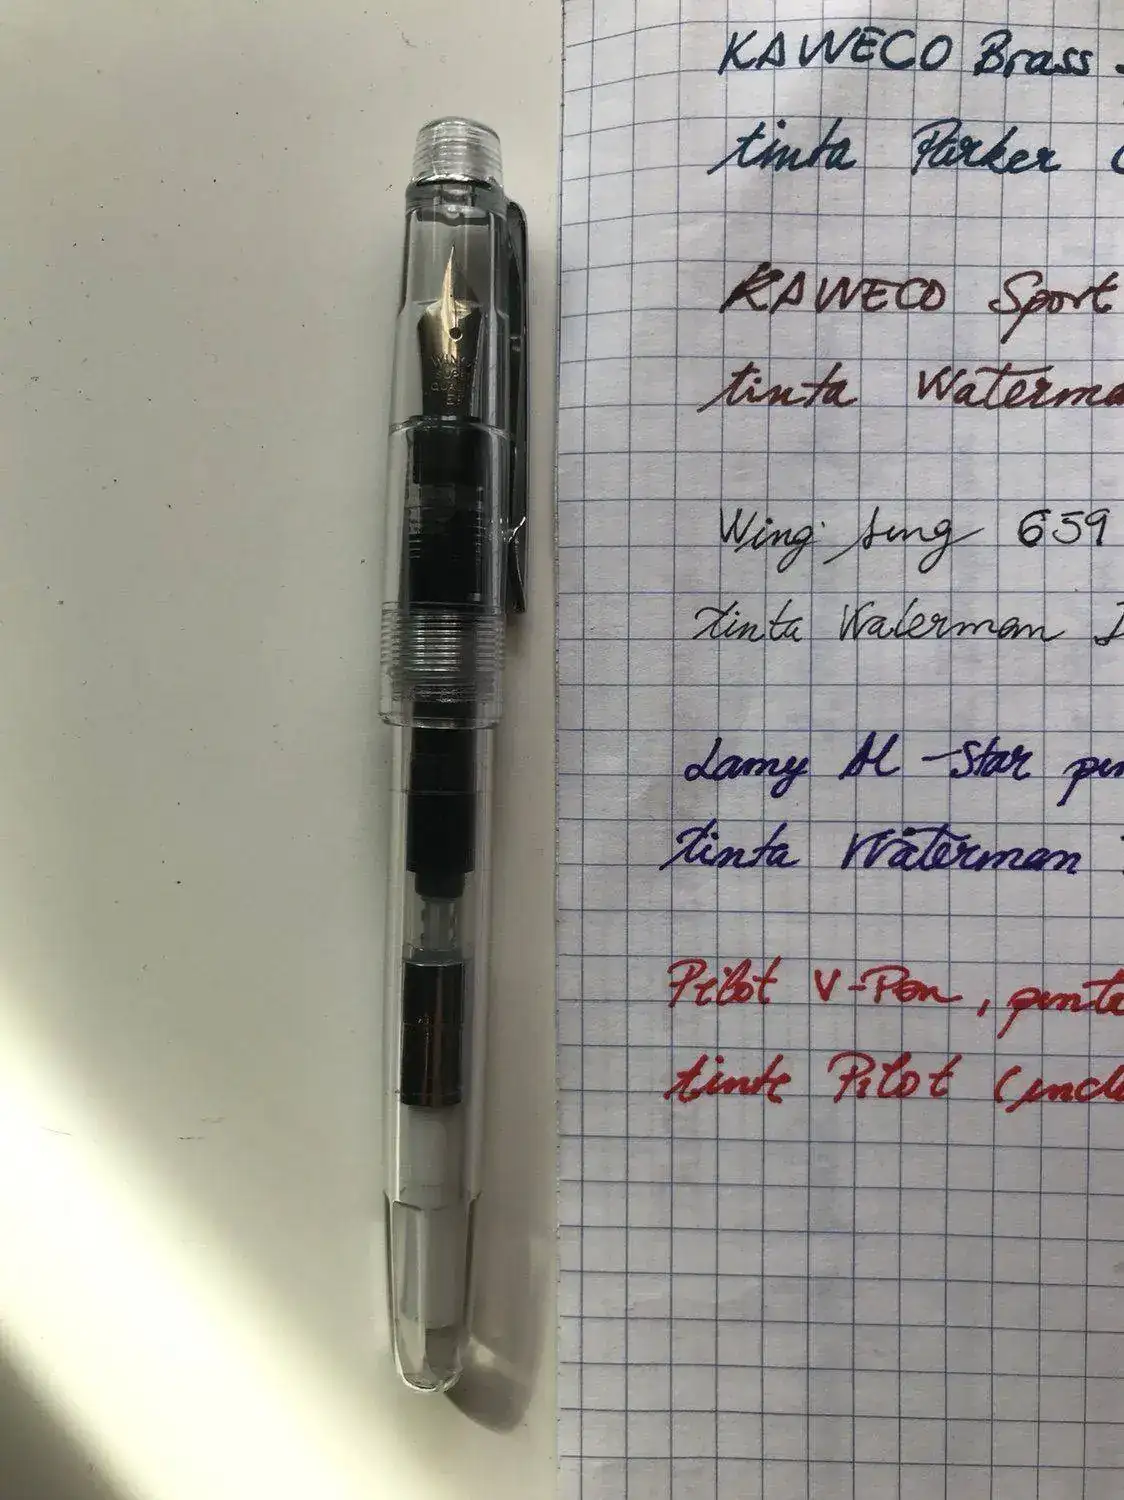 KAWECO Brass
tinta Parker
KAWECO Sport
tinta Waterma
Wing sung 659
tinta Waterman
Lamy Al-Star pen
tinta Waterman
Pilot V-Pen, pente
tinte Pilot (inclu
WING